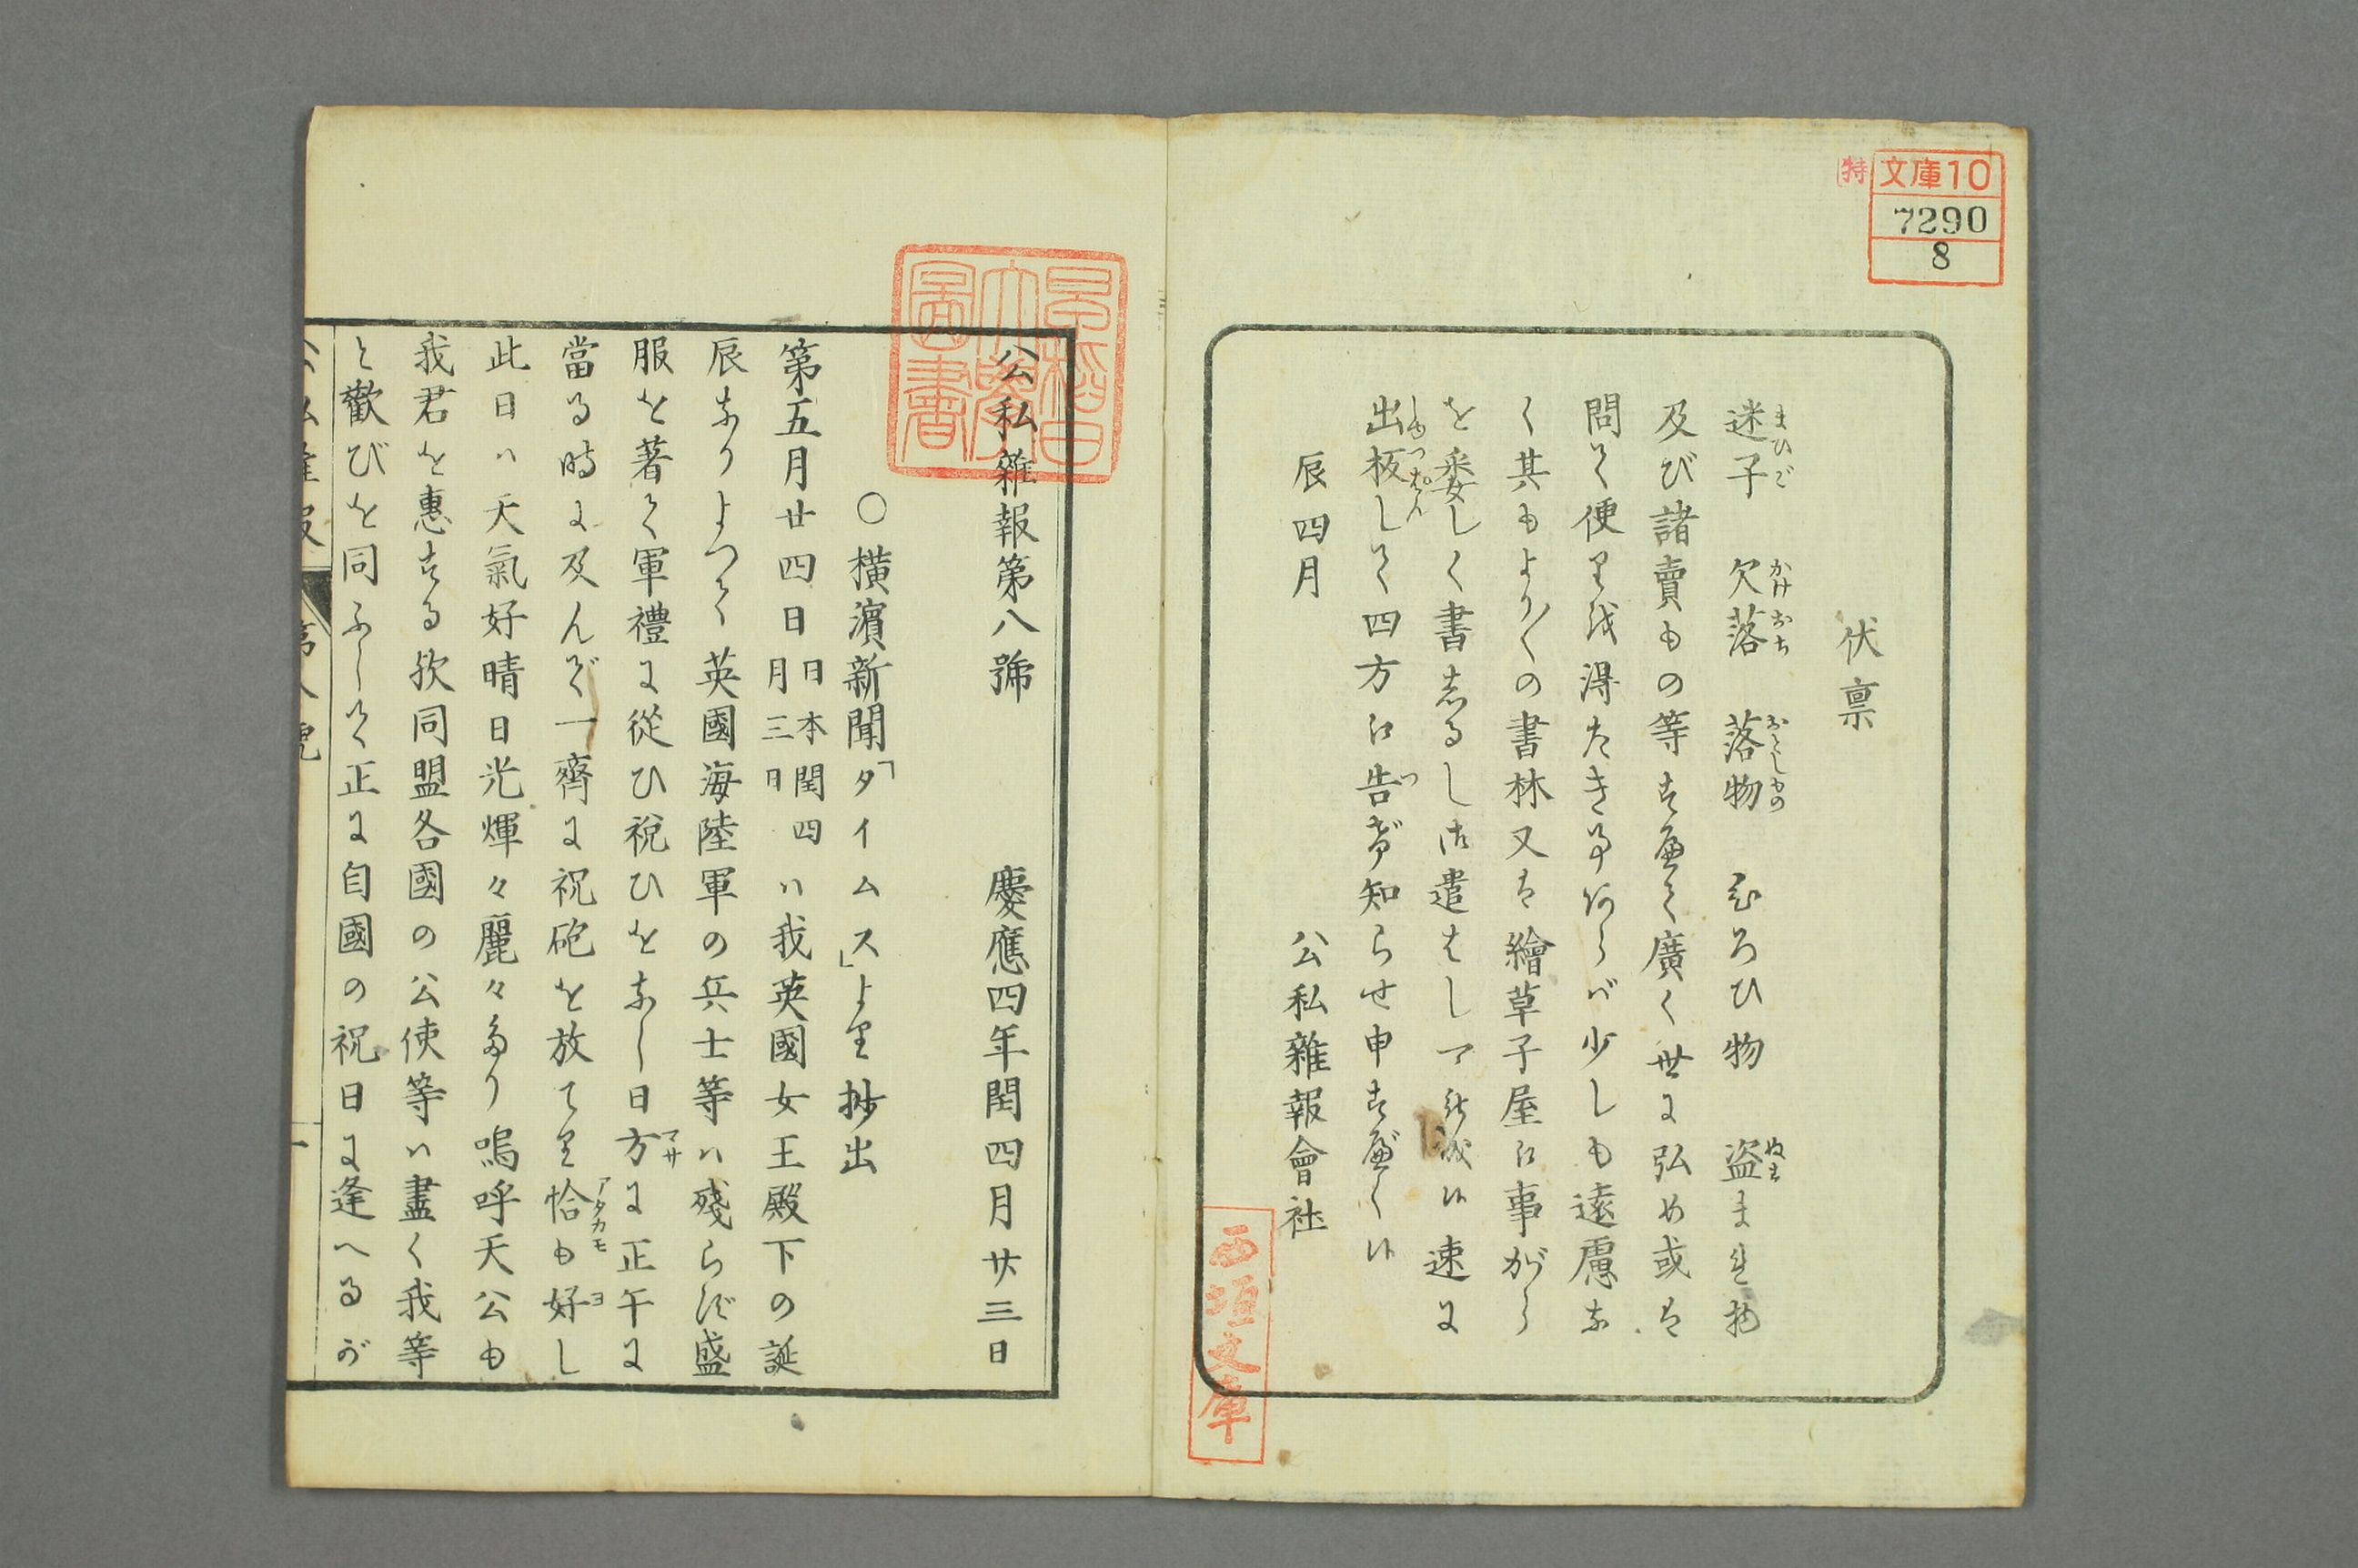 特
文庫10
7290
8
伏禀
迷子　欠落　落物　ひろひ物　盗まれ物
まひご　かけおち　おとしもの　ぬす
及び諸賣もの等すべて廣く世に弘め或は
問て便りを得たき事あらバ少しも遠慮な
く其もより〱の書林又は繪草子屋江事がら
を委しく書しるし御遣はし可被成候速に
出板して四方江告げ知らせ申すべく候
しゆつぱん　つ
辰四月
公私雜報會社
西垣文庫
早稲田大學圖書
公私雜報第八號　慶應四年閏四月廿三日
○横濱新聞「タイムス」より抄出
第五月廿四日日本閏四月三日ハ我英國女王殿下の誕
辰なりよつて英國海陸軍の兵士等ハ殘らず盛
服を著て軍禮に從ひ祝ひをなし日方に正午に
マサ
當る時に及んで一齊に祝砲を放てり恰も好し
アタカモ　ヨ
此日ハ天氣好晴日光煇々麗々たり嗚呼天公も
我君を惠する歟同盟各國の公使等ハ盡く我等
と歡びを同ふして正に自國の祝日に逢へるが
公私雜報　第八號　一